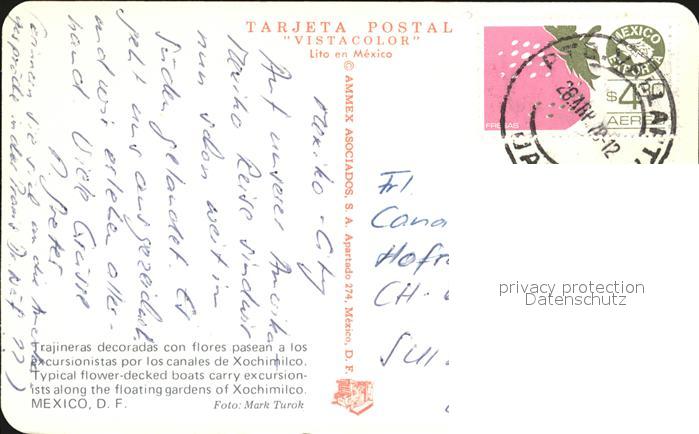 TARJETA POSTAL
"VISTACOLOR"
Lito en México
© AMMEX ASOCIADOS, S. A. Apartado 274, México, D. F.
MEXICO
EXPORTA
$4.80
AEREO
FRESAS
Mexiko-City
Auf unserer Amerika-
Mexiko Reise sind wir
nun schon weit im
Süden gelandet. Es
geht uns ausgezeichnet
und wir erleben aller-
hand. Viele Grüsse
Erinnern Sie sich an die
Frl.
Hofr
CH-
privacy protection
Datenschutz
Trajineras decoradas con flores pasean a los
excursionistas por los canales de Xochimilco.
Typical flower-decked boats carry excursion-
ists along the floating gardens of Xochimilco.
MEXICO, D. F.
Foto: Mark Turok